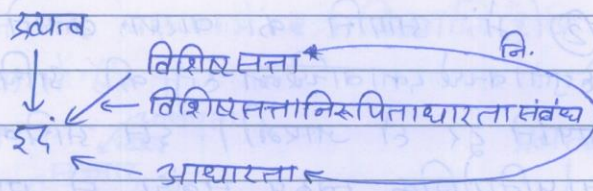 द्रव्यत्व
विशिष्टसत्ता नि.
विशिष्टसत्तानिरूपिताधारतासंबंध
इदं
आधारता